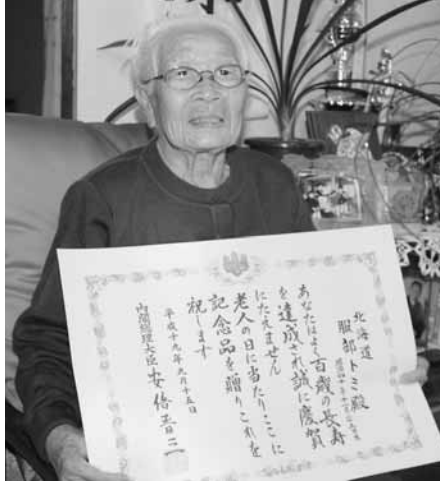 北海道
服部トミ殿
あなたはよく百歳の長寿
を達成され誠に慶賀
にたえません
老人の日に当たりここに
記念品を贈りこれを
祝します
平成十九年九月十五日
内閣総理大臣 安倍晋三